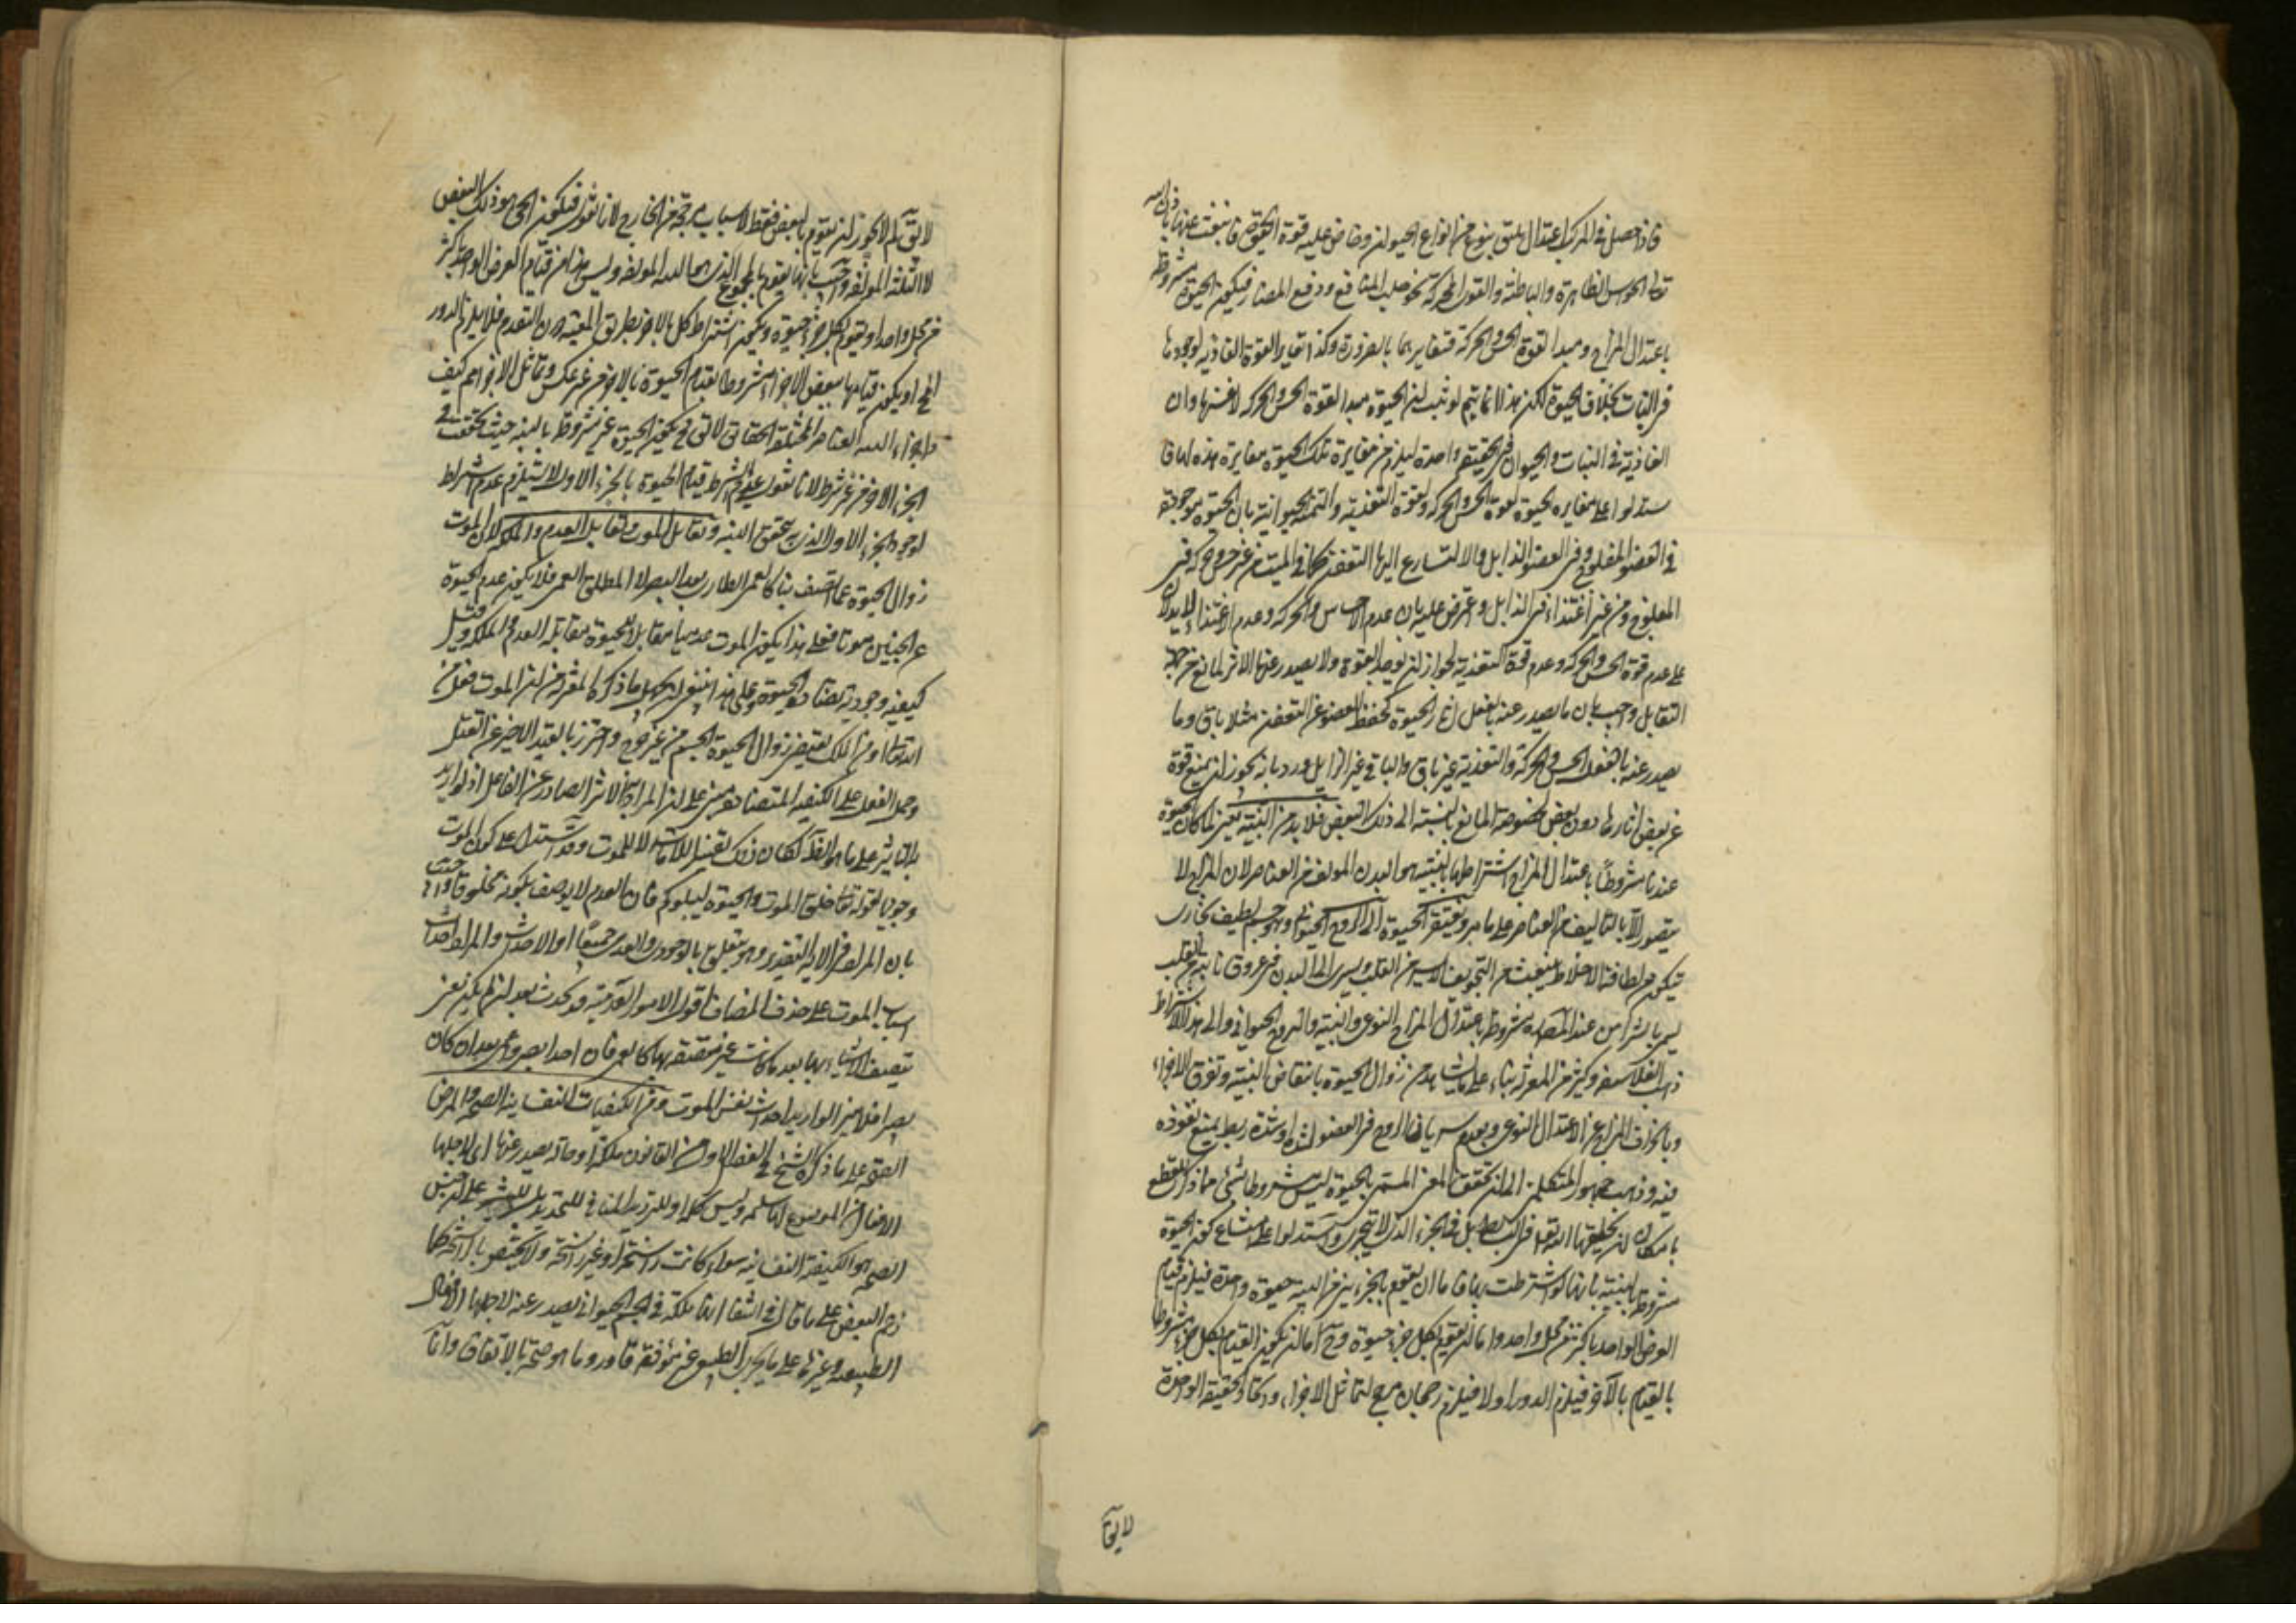 فاذا حصل فى المركب اعتدال يليق بنوع من انواع الحيوان وفاض عليه قوة الحيوة فانبعث عنها باذن الله
تعالى الحواس الظاهرة والباطنة والقوى المحركة نحو جلب المنافع ودفع المضار فيكون الحيوة مشروطة
باعتدال المزاج ومبدا لقوة الحس والحركة فتغايرهما بالضرورة وكذا تغاير القوة الغاذية لوجودها
فى النبات بخلاف الحيوة لكن هذا انما يتم لو ثبت ان الحيوة مبدا لقوة الحس والحركة لا نفسها وان
الغاذية فى النبات والحيوان حقيقة واحدة ليلزم من مغايرة تلك الحيوة مغايرة هذه اياها
ستدلوا على مغايرة الحيوة لقوة الحس والحركة ولقوة التغذية والتنمية الحيوانية بان الحيوة موجودة
فى العضو المفلوج وفى العضو الذابل والا لتسارع اليها التعفن كما فى الميت من غير حس وحركة فى
المفلوج ومن غير اغتذاء فى الذابل واعترض عليه بان عدم الاحساس والحركة وعدم الاغتذاء لا يدلان
على عدم قوة الحس والحركة وعدم قوة التغذية لجواز ان يوجد القوة ولا يصدر عنها الاثر لمانع من جهة
القابل واجيب بان ما يصدر عنه بالفعل اثار الحيوة كحفظ العضو عن التعفن مثلا باق وما
يصدر عنه بالفعل الحس والحركة والتغذية غير باق والباقى غير الزايل ورد بانه يجوز ان يمنع قوة
عن بعض اثارها دون بعض لخصوصية المانع بالنسبة الى ذلك البعض فلا بد من البنية يعنى لما كان الحيوة
عندنا مشروطا باعتدال المزاج اشتراطها بالبنية هو البدن المؤلف من العناصر لان المزاج لا
يتصور الا بالتاليف من العناصر على ما مر ويفتقر الحيوة الى الروح الحيوانى وهو جسم لطيف بخارى
يتكون من لطافة الاخلاط ينبعث من التجويف الايسر من القلب ويسرى الى البدن فى عروق نابتة من القلب
يسمى بالشرائين عندالمص مشروطة باعتدال المزاج النوعى والبنية والروح الحيوانى والى هذا الاشتراط
ذهب الفلاسفة وكثير من المعتزلة بناء على ما يشاهد من زوال الحيوة بانتقاض البنية وتفرق الاجزاء
وبانحراف المزاج عن الاعتدال النوعى وبعدم سريان الروح فى العضو لشدة او شدة ربط يمنع نفوذه
فيه وذهب جمهور المتكلمين الى ان تحقق المعنى المسمى بالحيوة ليس مشروطا بشئ مما ذكر للقطع
بامكان ان يخلقها الله تعالى فى البسائط بل فى الجزء الذى لا يتجزى واستدلوا على امتناع كون الحيوة
مشروطة بالبنية بانها لو اشترطت بها فاما ان يقوم بالجزئين من البنية حيوة واحدة فيلزم قيام
العرض الواحد باكثر من محل واحد واما ان يقوم بكل جزء حيوة وح اما ان يكون القيام بكل جزء مشروطا
بالقيام بالآخر فيلزم الدور اولا فيلزم رجحان بلا مرجح لتماثل الاجزاء واتحاد الحقيقة الواحدة
لا يقال
لا يق لم لا يجوز ان يقوم بالبعض فقط لاسباب مرجحة من الخارج لانا نقول فيكون الحى هو ذلك البعض
لا البنية المؤلفة واجيب بانها يقوم بالمجموع الذى هو البنية المؤلفة وليس هذا من قيام العرض الواحد باكثر
من محل واحد او يقوم بكل جزء حيوة ويكون اشتراط كل بالاخر بطريق المعية دون التقدم فلا يلزم الدور
المح او يكون قيامها ببعض الاجزاء مشروطا بقيام الحيوة بالاخر من غير عكس وتماثل الاجزاء مم كيف
واجزاء البنية العناصر المختلفة الحقائق لا يق فيكون الحيوة غير مشروطة بالبنية حيث تحققت فى
الجزء الاخر من غير شرط لانا نقول عدم اشتراط قيام الحيوة بالجزء الاول لا يستلزم عدم اشتراط
لوجود الجزء الاول الذى به يتحقق البنية وتقابل الموت وتقابل العدم والملكة لان الموت
زوال الحيوة عما اتصف بها كالعمى الطارى بعد البصر لا المطلق العمى فلا يكون عدم الحيوة
عن الجنين موتا فعلى هذا يكون الموت عدميا مقابلا للحيوة مقابلة العدم والملكة وقيل
كيفية وجودية يضاد الحيوة وعلى هذا ينبغى ان يحمل ما ذكره المعتزلة من ان الموت فعل من
الله تعالى او من الملك يقتضى زوال الحيوة الجسم من غير جرح واحترز بالقيد الاخير عن القتل
وحمل الفعل على الكيفية المتضادة مبنى على ان المراد به الاثر الصادر عن الفاعل اذ لو اريد به
التاثير على ما هو الظ لكان ذلك تفسيرا للاماتة لا للموت وقد استدل على كون الموت
وجوديا بقوله تعالى خلق الموت والحيوة ليبلوكم فان العدم لا يوصف بكونه مخلوقا واجيب
بان المراد فى الاية التقدير وهو يتعلق بالوجودى والعدمى جميعا او الاحداث والمراد احداث
اسباب الموت على حذف المضاف اقول الامور العدمية قد يحدث بعد ان لم يكن يعنى
يتصف الاشياء بها بعد ما كانت غير متصفة بها كما يعمى فان احدا يصير اعمى بعد ان كان
بصيرا فلا ضير لو اريد احداث نفس الموت ومن الكيفيات النفسانية الصحة والمرض
الصحة على ما ذكره الشيخ فى الفصل الاول من القانون ملكة او حالة يصدر عنها اى لاجلها
الافعال من الموضوع لها سليمة وليس كلمة او للترديد المنافى للتحديد بل للتنبيه على ان جنس
الصحة هو الكيفية النفسانية سواء كانت راسخة او غير راسخة ولا يختص بالراسخة كما
زعم البعض على ما قال فى الشفا انها ملكة فى الجسم الحيوانى يصدر عنه لاجلها الافعال
الطبيعية وغيرها على مايجرى الطبيعى غير مؤوفة قاور وما هو صحة بالاتفاق وانما